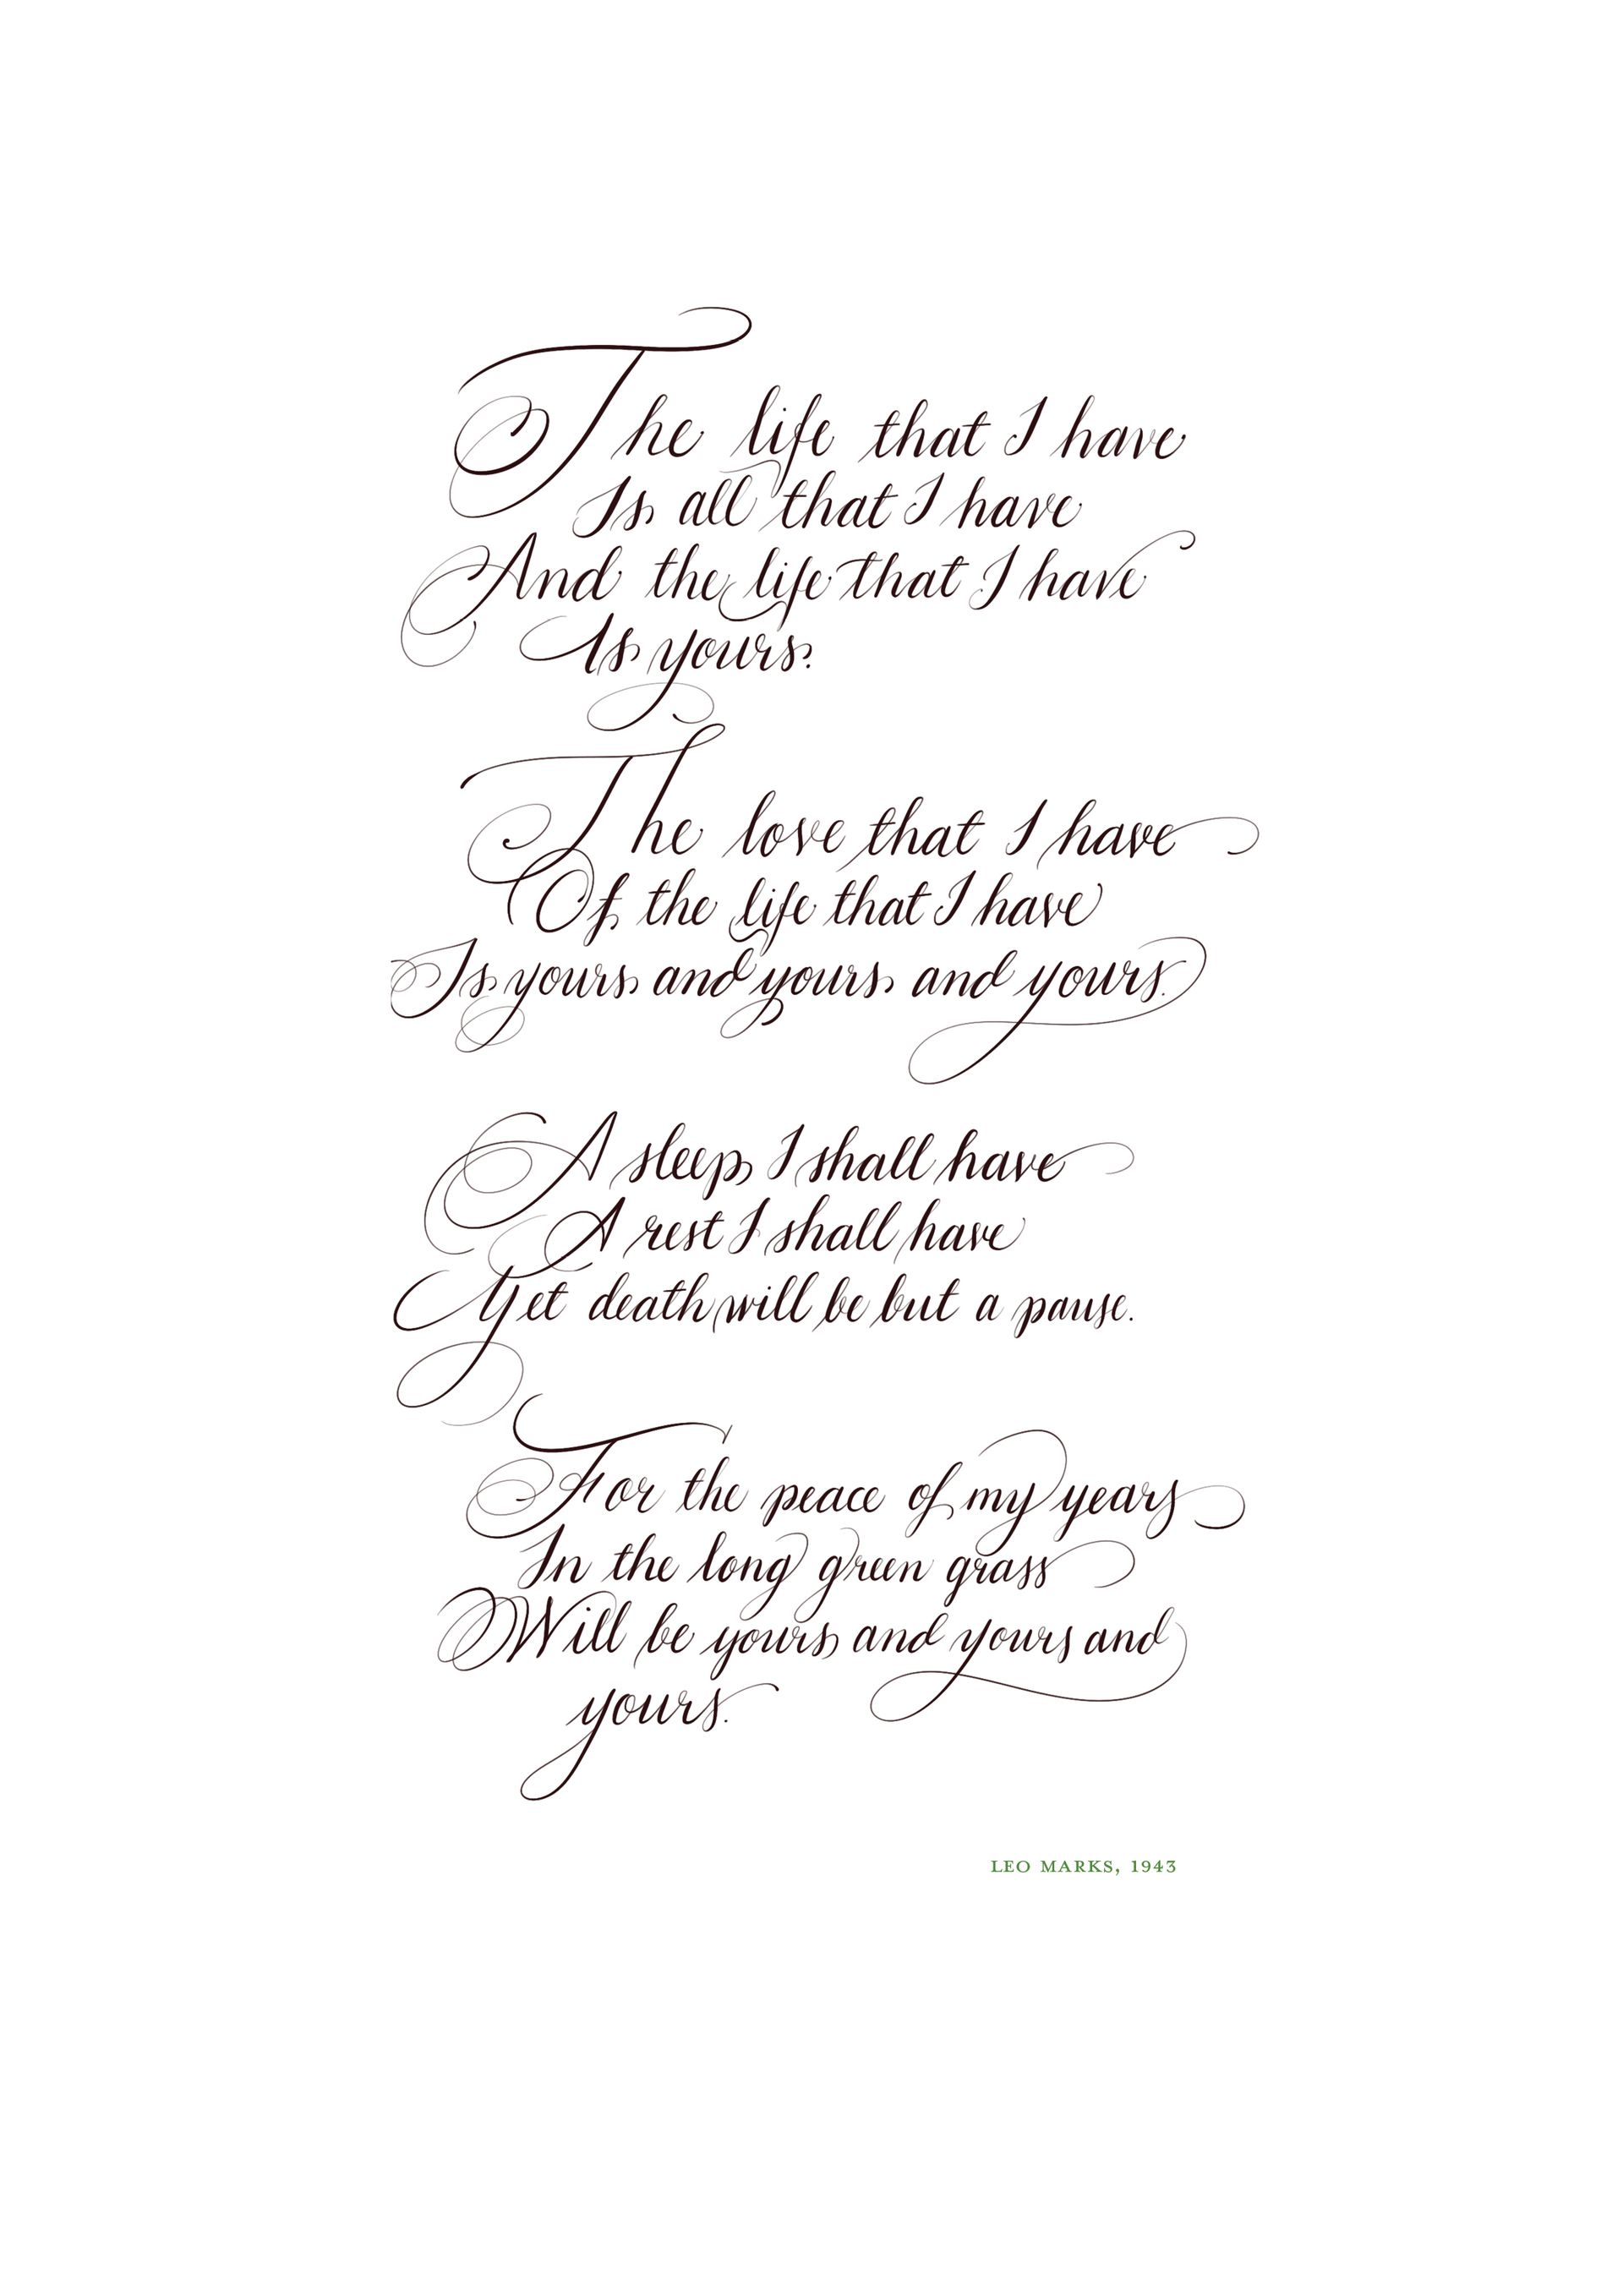 The life that I have
Is all that I have
And the life that I have
Is yours.
The love that I have
Of the life that I have
Is yours and yours and yours.
A sleep I shall have
A rest I shall have
Yet death will be but a pause.
For the peace of my years
In the long green grass
Will be yours and yours and
yours.
LEO MARKS, 1943